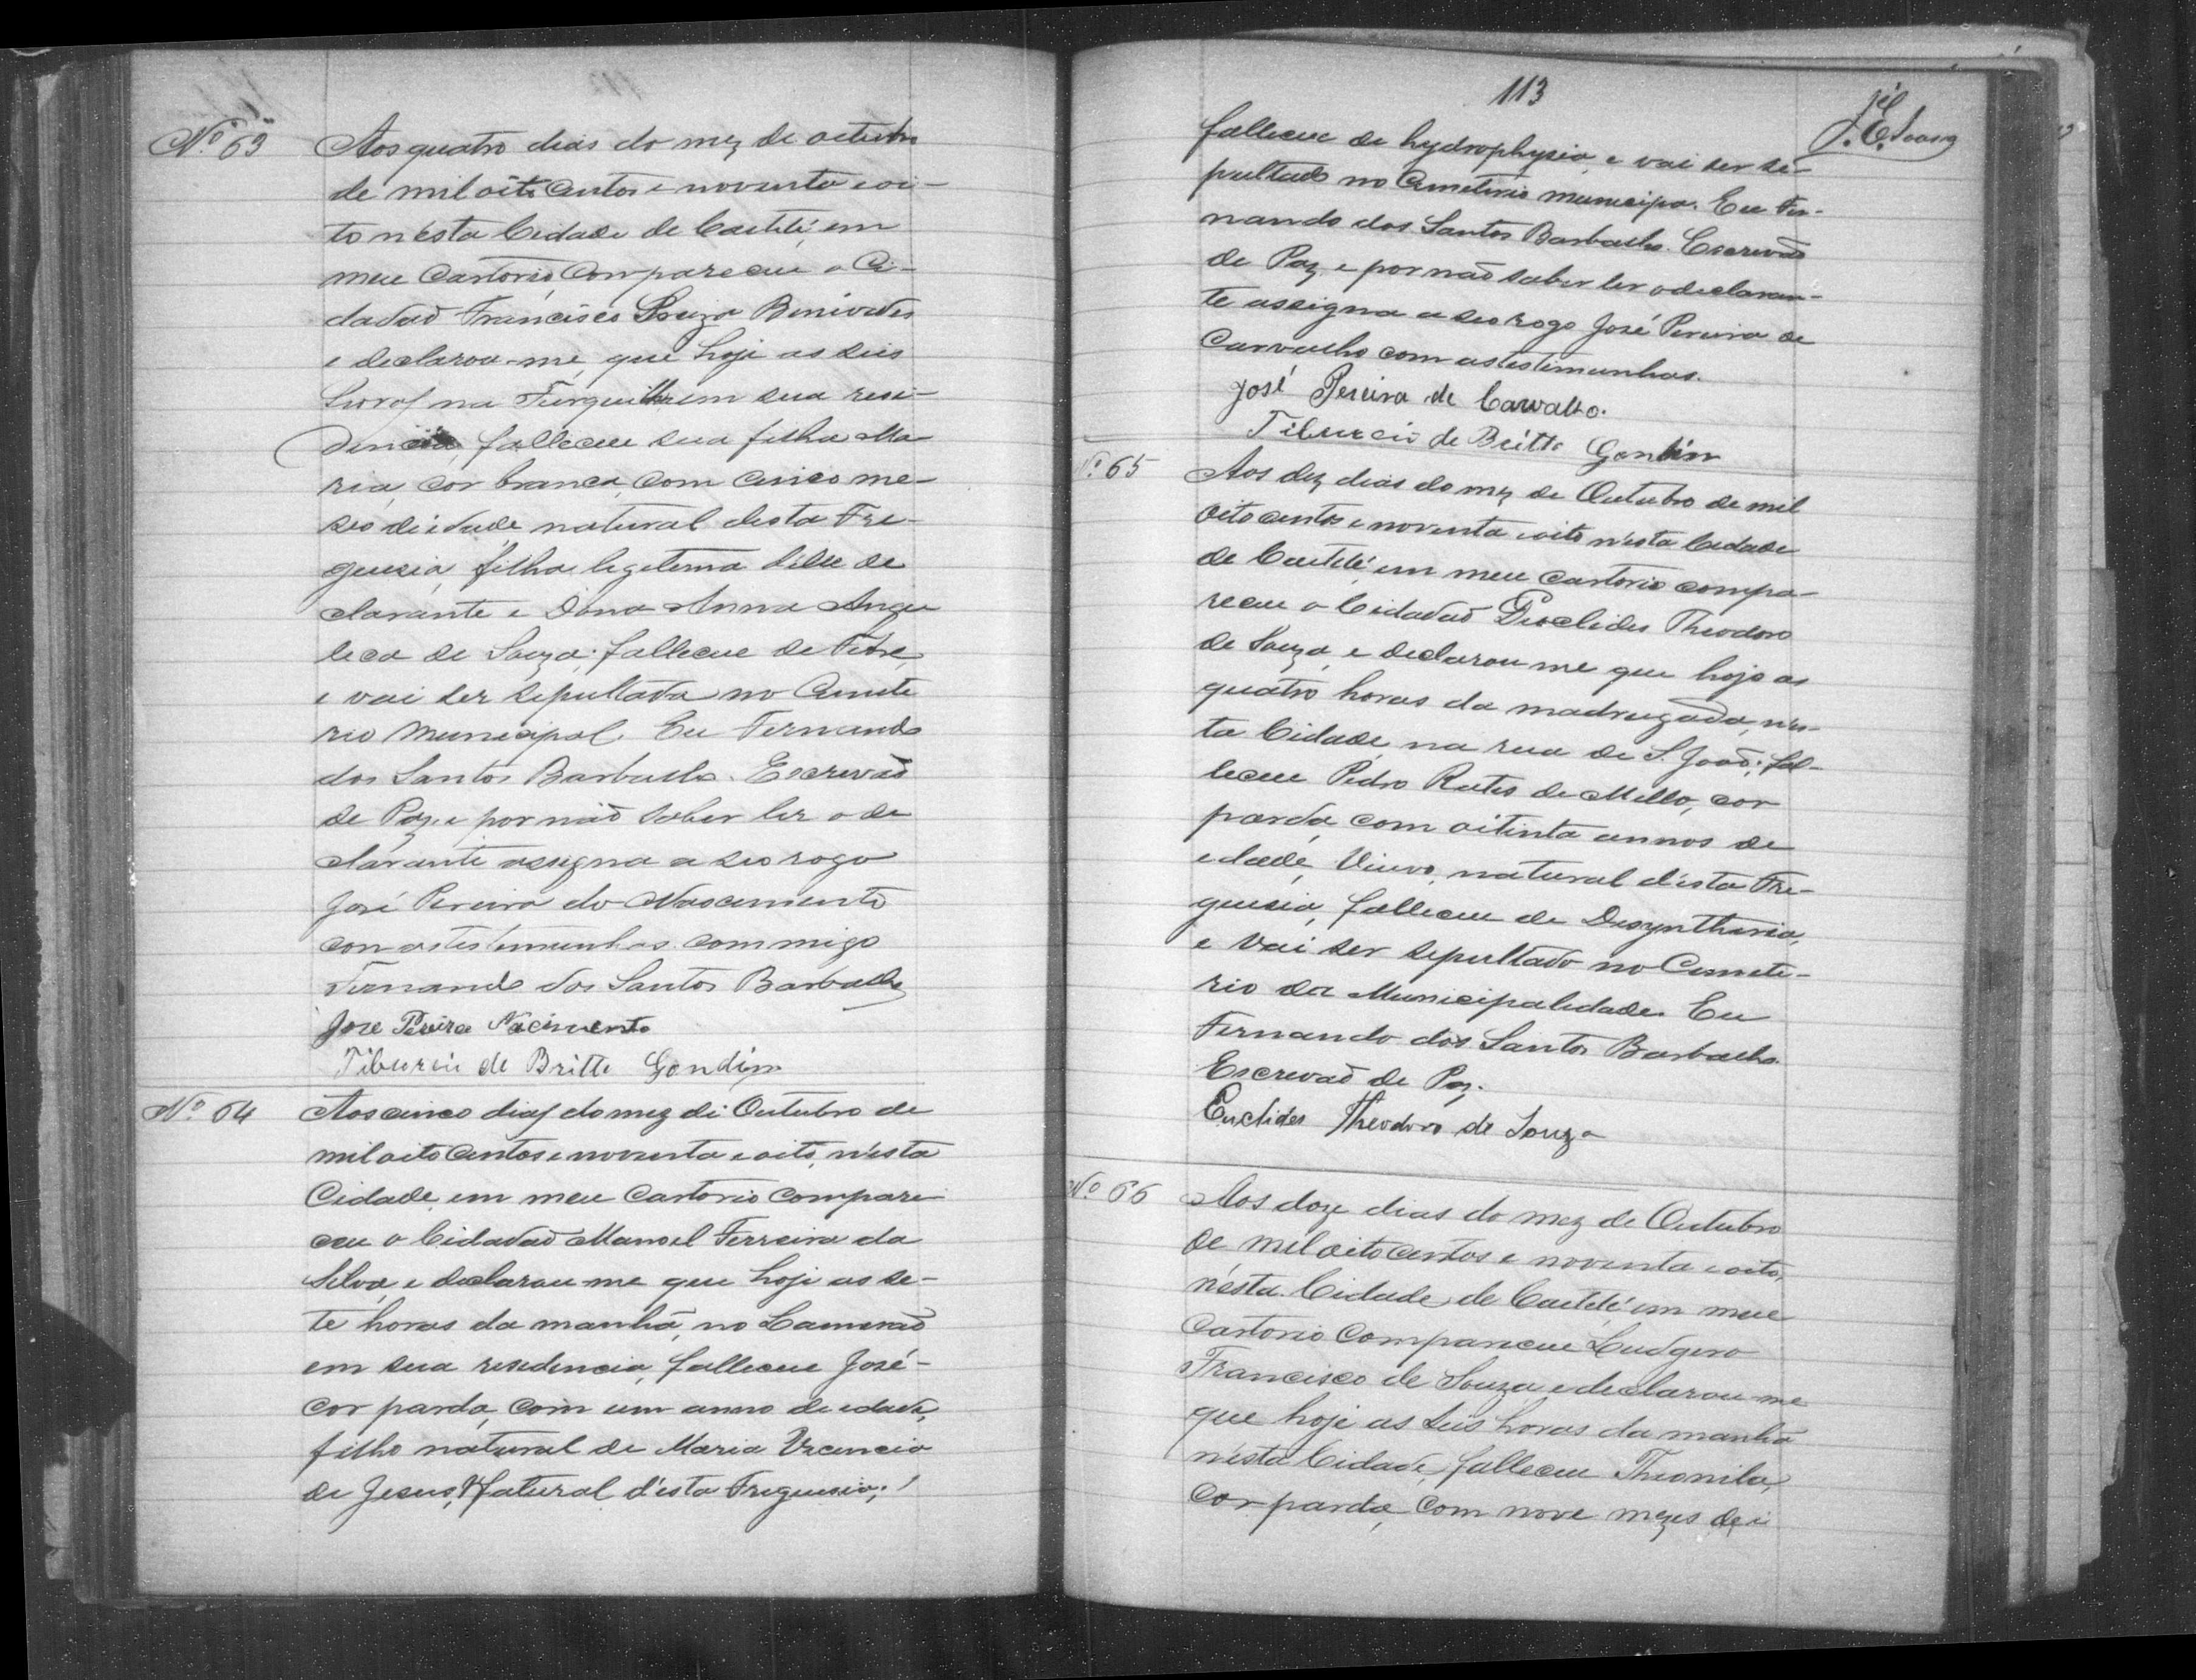 Nº 63
Aos quatro dias do mez de outubro
de mil oito centos e noventa e oi-
to n'esta Cidade de Caetité, em
meu Cartorio, Compareceu o Ci-
dadaõ Francisco Souza Benivades
e declarou-me, que hoje as seis
horas na em sua resi-
dencia, falleceu sua filha Ma
ria, cor branca, com cinco me-
ses de idade, natural desta Fre-
guesia, filha legitema delle de
clarante e Dona Anna Ange
lica de Souza; falleceu de Febre,
e vai ser sepultada no Cemite
rio Municipal. Eu Fernando
dos Santos Barbalho. Escrevaõ
de Paz, e por naõ saber ler o de
clarante assigna a seo rogo
José Pereira do Nascimento
com as testemunhas commigo
Fernando dos Santos Barbalho
Jose Pereira Nacimento
Tiburcio de Britto Gondim
Nº 64
Aos cinco dias do mez de Outubro de
mil oito centos e noventa e oito, n'esta
Cidade, em meu Cartorio compare
ceu o Cidadaõ Manoel Ferreira da
Silva, e declarou-me que hoje as se-
te horas da manhã, no
em sua residencia, falleceu José-
cor parda, com um anno de edade,
filho natural de Maria Vicencia
de Jesus, Natural d'esta Freguesia;
113
falleceu de hydrophysia, e vai ser se-
pultado no Cemeterio municipa. Eu Fer-
nando dos Santos Barbalho. Escrevaõ
de Paz, e por naõ saber ler o declaran-
te assigna a seo rogo José Pereira de
Carvalho com as testimunhas.
José Pereira de Carvalho.
Tiburcio de Britto Gondim
Nº 65
Aos dez dias do mez de Outubro de mil
oito centos e noventa e oito n'esta Cidade
de Caetité, em meu cartorio compa-
receu o Cidadaõ Euclides Theodoro
de Souza, e declarou-me que hoje as
quatro horas da madrugada, n'es-
ta Cidade, na rua de S. Joaõ; fal-
leceu Pedro de Mello, cor
parda, com oitinta annos de
edade, Viuvo, natural d'esta Fre-
guesia, falleceu de Desyntheria,
e vai ser sepultado no Cemite-
rio da Municipalidade. Eu
Fernando dos Santos Barbalho.
Escrevaõ de Paz.
Euclides Theodoro de Souza
Nº 66
Aos doze dias do mez de Outubro
de mil oito centos e noventa e oito,
n'esta Cidade de Caetité, em meu
Cartorio Compareceu Ludgero
Francisco de Souza, e declarou-me
que hoje as seis horas da manhã
n'esta Cidade, falleceu Theonila,
cor parda, com nove mezes de i